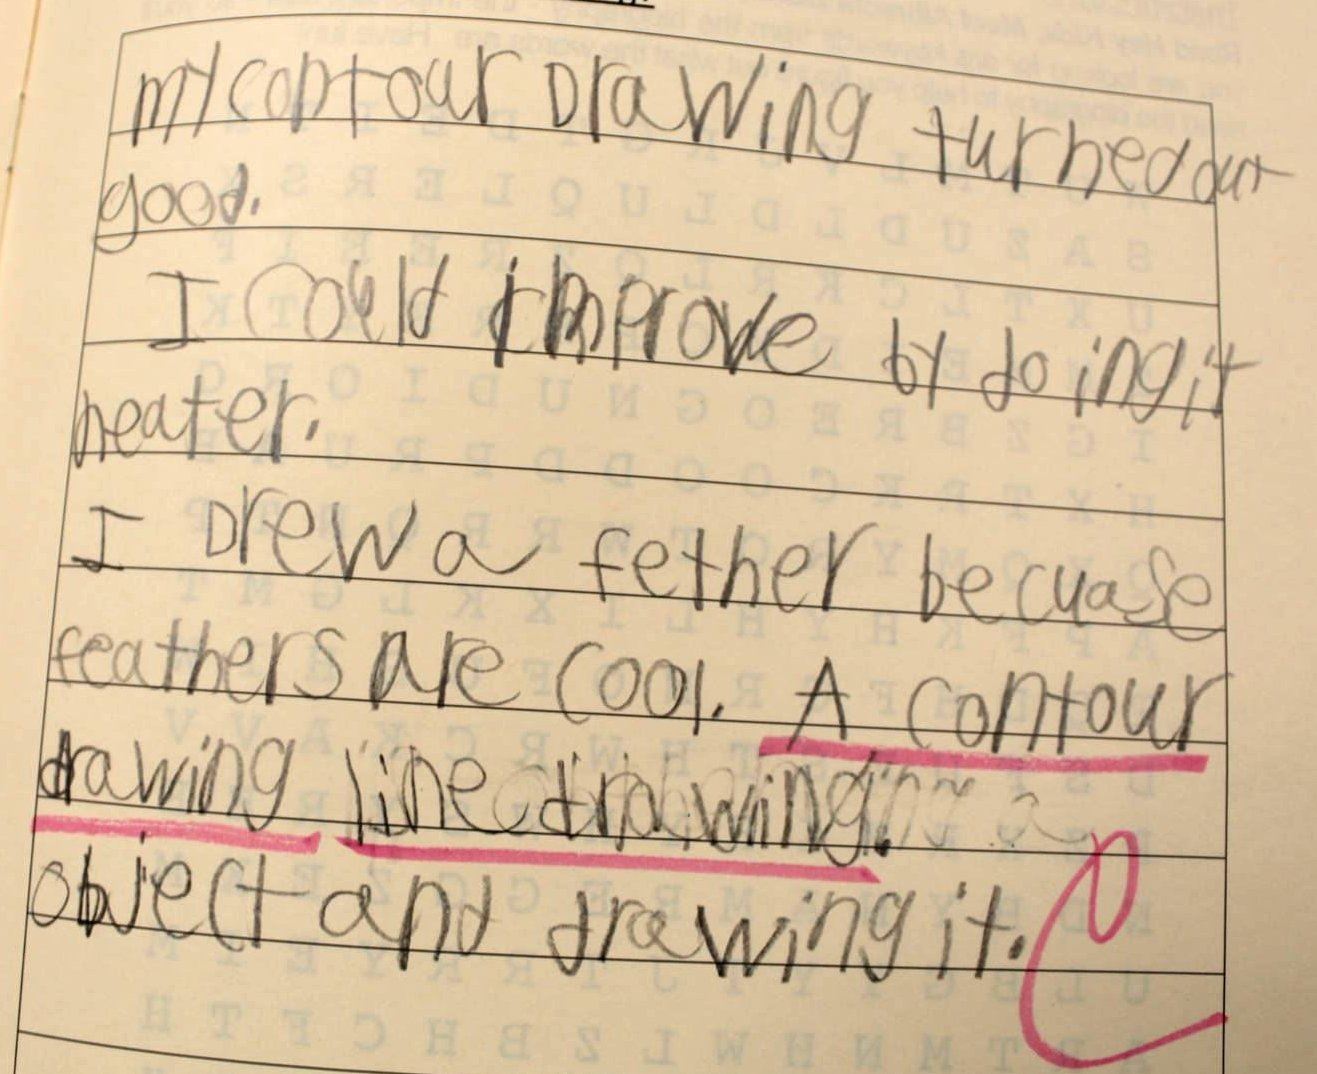 my contour Drawing turned out
good.
I Could improve by doing it
neater.
I Drew a fether becuase
feathers are cool. A contour
drawing line drawing.
object and drawing it.